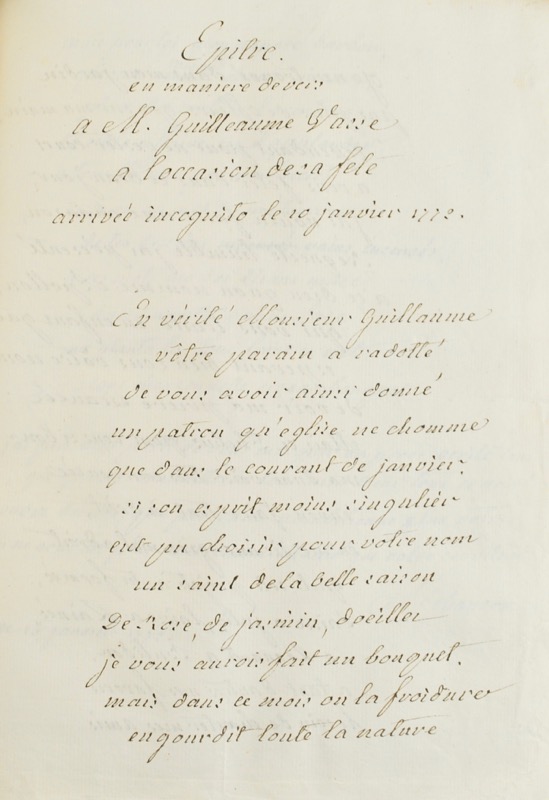 Epitre.
en maniere de vers
a M. Guilleaume Vasse
a l'occasion de sa fete
arrivée incognito le 10 janvier 1772.
En vérité Monsieur Guillaume
vôtre parain a radotté
de vous avoir ainsi donné
un patron qu'eglise ne chomme
que dans le courant de janvier.
si son esprit moins singulier
eut pu choisir pour votre nom
un saint de la belle saison
De Rose, de jasmin, d'oeillet
je vous aurois fait un bouquet.
mais dans ce mois ou la froidure
engourdit toute la nature